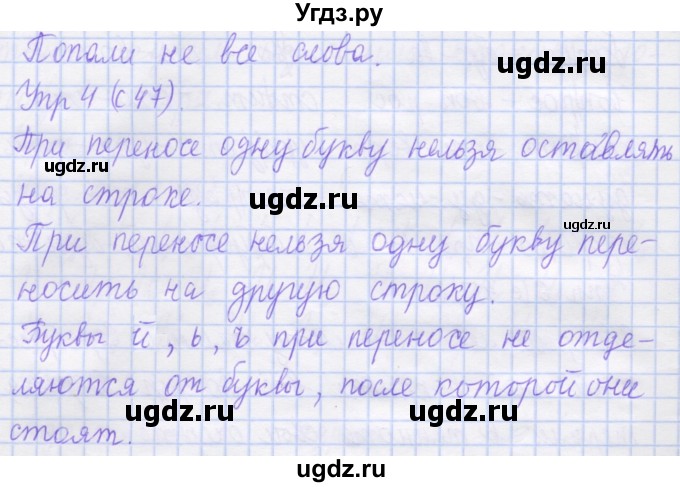 Угдз.ру
Попали не все слова.
Упр 4 (с 47).
При переносе одну букву нельзя оставлять
на строке.
При переносе нельзя одну букву пере-
носить на другую строку.
Буквы й, ь, ъ при переносе не отде-
ляются от буквы, после которой они
стоят.
ugdz.ru
ugdz.ru
ugdz.ru
ugdz.ru
ugdz.ru
ugdz.ru
ugdz.ru
ugdz.ru